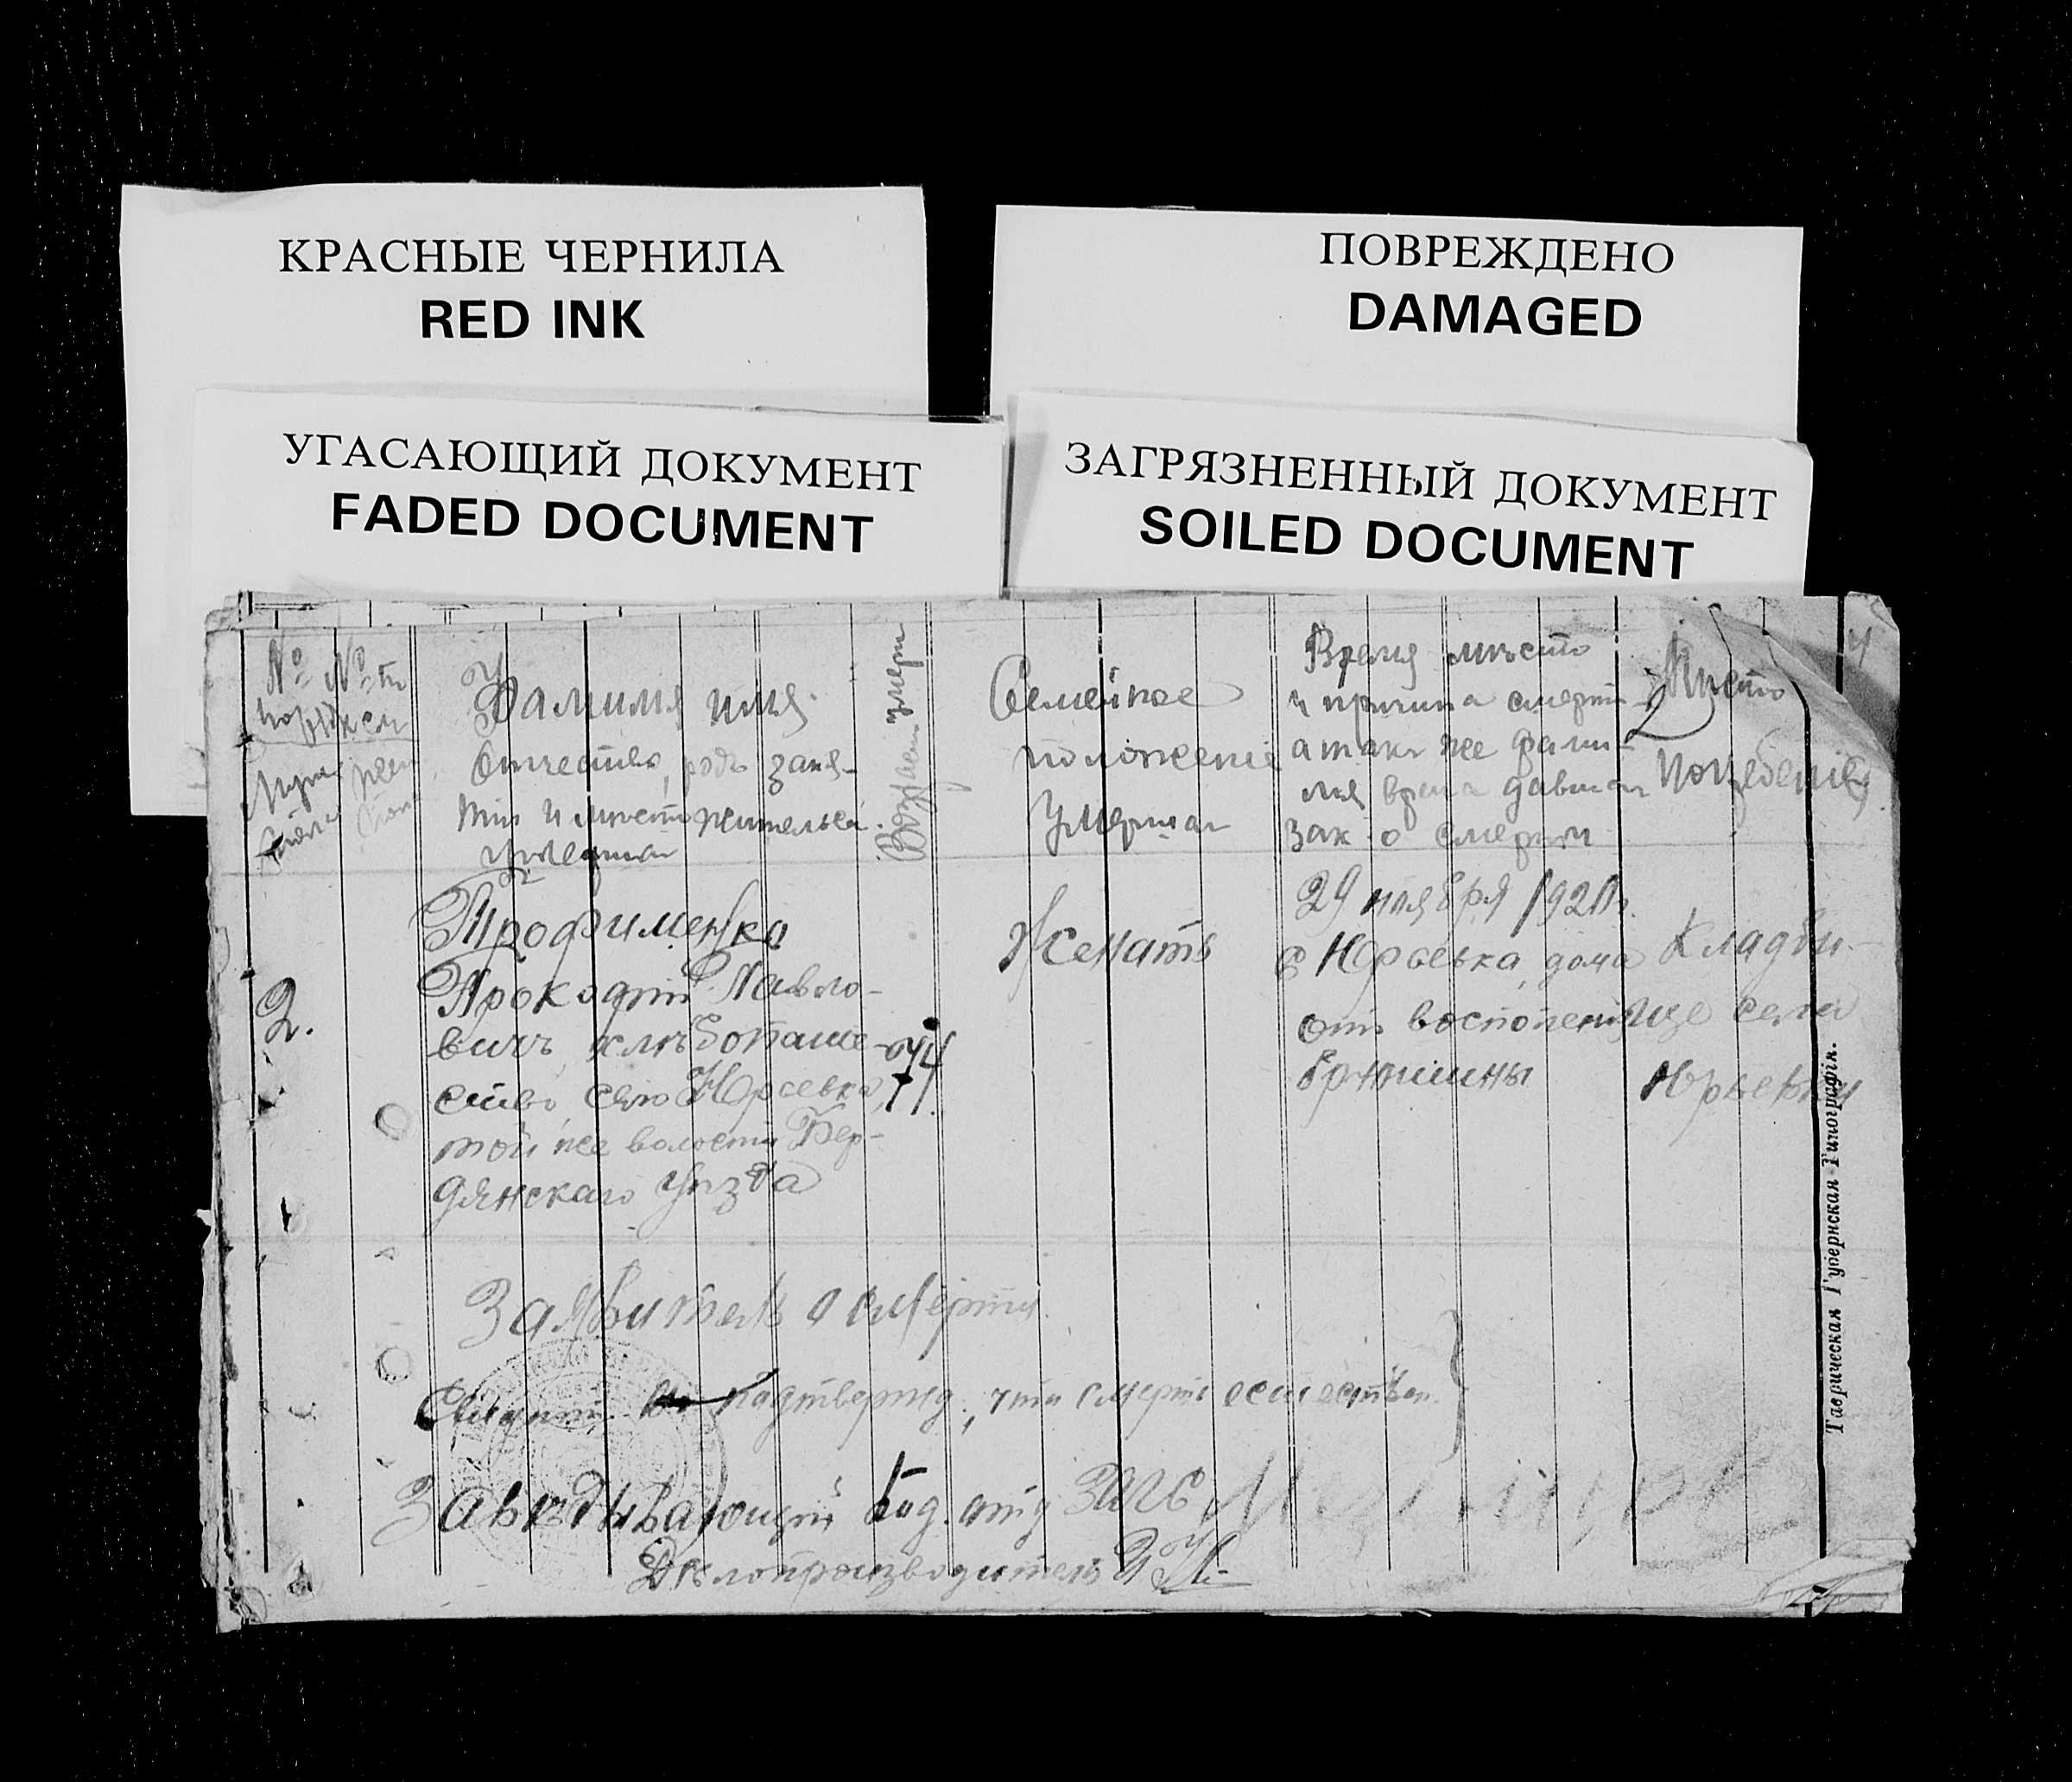 КРАСНЫЕ ЧЕРНИЛА
RED INK
ПОВРЕЖДЕНО
DAMAGED
УГАСАЮЩИЙ ДОКУМЕНТ
FADED DOCUMENT
ЗАГРЯЗНЕННЫЙ ДОКУМЕНТ
SOILED DOCUMENT
№ №
Фамилия имя
Отчество, родъ заня-
тій и место жительс.
умершаг
Возраст умерш
Семейное
положеніе
умершаг
Время место
и причина смерти
а так же фами-
лия врача давшаг
зак о смерти
Место
погребения
2.
Трофименко
Прокофій Павло-
вичъ хлѣбопаше-
ство, село Юрьевка,
той же волости Бер-
дянскаго уѣзда
74
Женатъ
29 ноября 1920г.
с Юрьевка, дома
отъ воспален
брюшины
Кладби-
ще села
Юрьевки
Заявитель о смерти
Свидѣт. подтвержд., что смерть естествен.
Завѣдывающій под. отд ЗАГС
Дѣлопроизводитель
Таврическая Губернская Типографія.